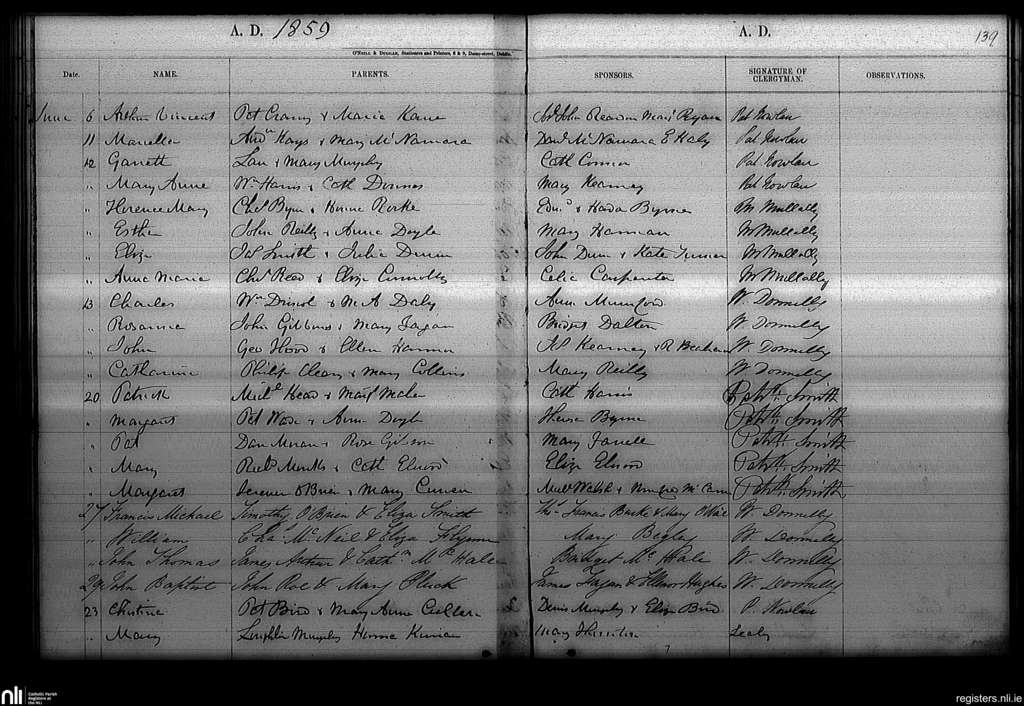 A. D. 1859
A. D.
139
O'NEILL & DUGGAN, Stationers and Printers, 8 & 9, Dame-street, Dublin.
Date. NAME. PARENTS. SPONSORS. SIGNATURE OF CLERGYMAN. OBSERVATIONS.
June 6 Arthur Vincent Pat & Maria Kane John Reardon Mary Ryan Pat Nowlan
11 Hays & Mary McNamara Danl McNamara E Haly Pat Nowlan
12 Garrett Lau & Mary Murphy Cath Connor Pat Nowlan
" Mary Anne Wm Harris & Cath Downes Mary Kearney Pat Nowlan
" Florence Mary Chas Byrne & Rorke Edwd & Byrne Mullally
" Esther John Reilly & Anne Doyle Mary Hannan Mullally
" Eliza Jas Smith & Julia Dunn John Dunn & Kate Mullally
" Anna Maria Chas Reed & Eliza Connolly Celia Carpenter Mullally
13 Charles Wm & M A Daly Ann W. Donnelly
" Rosanna John Gibbons & Mary Fagan Bridget Dalton W. Donnelly
" John Geo Hood & Ellen Kearney & R W. Donnelly
" Catharine Philip Cleary & Mary Collins Mary Reilly W Donnelly
20 Patrick Michl & Mary Maher Cath Harris Patk Smith
" Margaret Pat Wade & Anne Doyle Byrne Patk Smith
" Pat Dan Moran & Rose Gibson Mary Patk Smith
" Mary Richd Monks & Cath Eliza Patk Smith
" Margaret O'Brien & Mary Walsh & Patk Smith
27 Francis Michael Timothy O'Brien & Eliza Smith Thos Francis Burke & Mary W Donnelly
" William Chas McNeil & Eliza Flynn Mary Begley W Donnelly
" John Thomas James Arthur & Cathn McHale Bridget McHale W. Donnelly
29 John Baptist John Roe & Mary Pluck James Fagan & Ellenor Hughes W. Donnelly
23 Christina Pat Bird & Mary Anne Cullen Denis Murphy & Eliza Bird P. Nowlan
" Mary Loughlin Murphy Mary Leahy
nli
Catholic Parish
Registers at
the NLI
registers.nli.ie